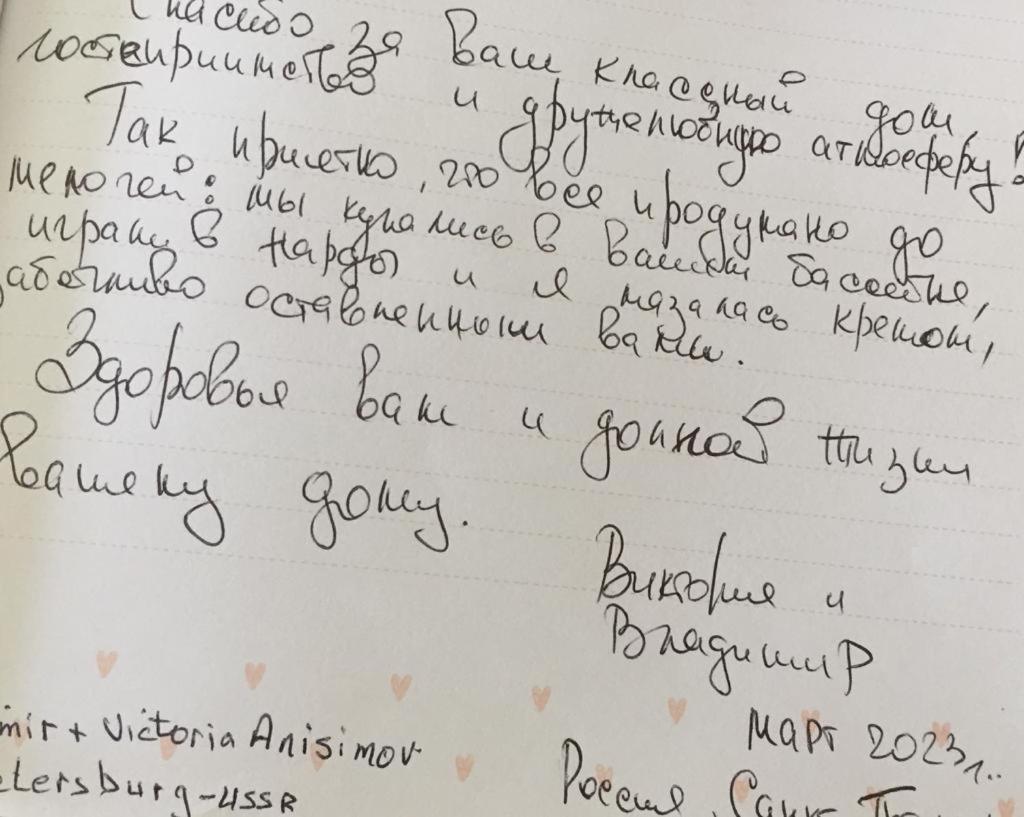 Спасибо за Ваш классный дом,
гостеприимство и дружелюбную атмосферу!
Так приятно, что всё продумано до
мелочей: мы купались в вашем бассейне,
играли в нарды и я мазалась кремом,
заботливо оставленными вами.
Здоровья вам и долгой жизни
вашему дому.
Виктория и
Владимир
март 2023 г.
mir + Victoria Anisimov
etersburg-USSR
Россия, Санкт